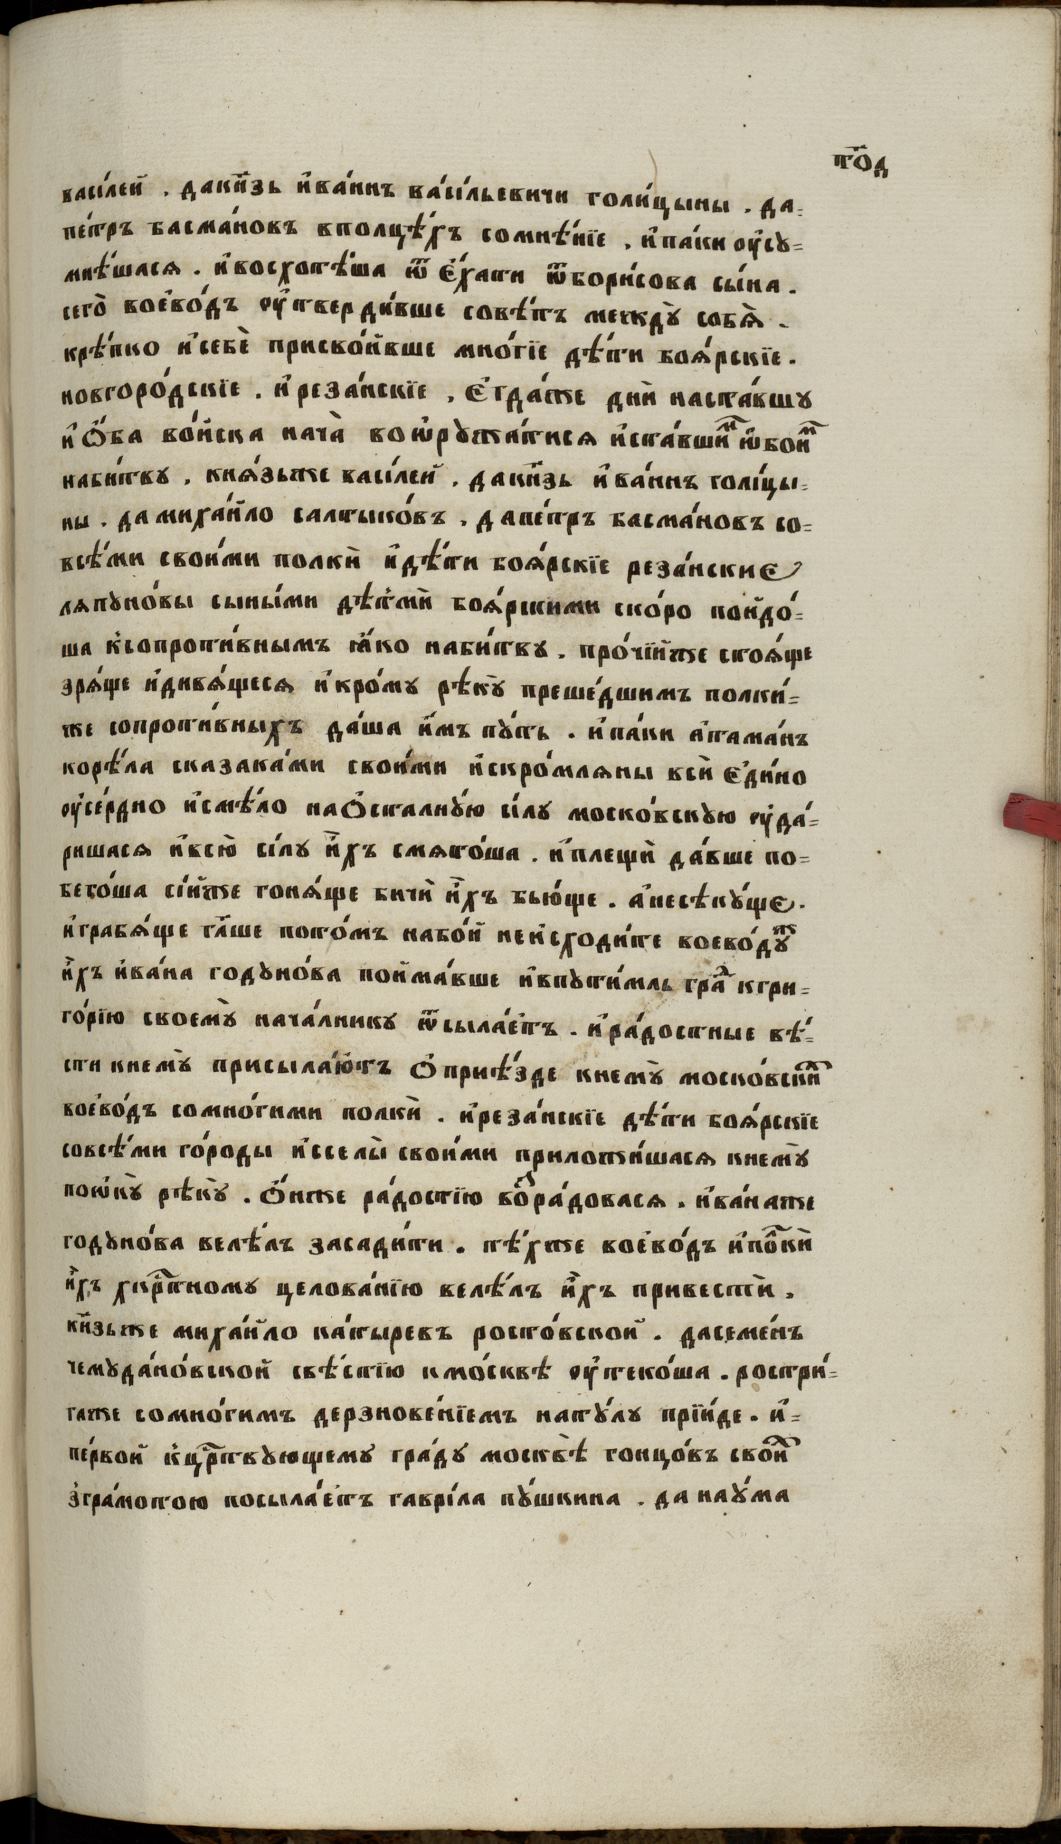 по҃д
васі́лей . дакн҃зь и҆ва́ннъ ва́сі́льевичи голи́цыны . да=
пе́тръ басма́новъ вполцѣ́хъ сомнѣ́нїе , и҆па́ки ѹ҆сꙋ=
мнѣ́шася . и҆восхотѣ́ша ѿ є҆́хати ѿбори́сова сы́на .
сего̀ воево́дъ ѹ҆твердивше совѣ́тъ междꙋ̀ собѧ̀ .
крѣ́пко и҆себѐ приско́ивше мно́гїе дѣ́ти боѧ́рскїе .
новгоро́дскїе . и҆реза́нскїе , є҆гда́же дни̑ наста́вшꙋ
и҆ ѻ҆́ба во́йска нача̀ воѡрꙋжа́тися и҆ста́вшиⷨ ѡ҆боиⷨ
наби́твꙋ . кнѧ́зьже васі́лей . дакн҃зь и҆ва́ннъ голі́цы=
ны . да миха́йло салтыко́въ . дапе́тръ басма́новъ со=
всѣ́ми свои́ми полкѝ и҆дѣ́ти боѧ́рскїе реза́нскиє
ляпꙋно́вы сыны́ми дѣтмѝ боѧ́рскими ско́ро пойдо́=
ша к̾сопроти́внымъ ꙗ҆́ко наби́твꙋ . про́чїйже стоѧ́ще
зрѧ́ще и҆дивѧ́щеся и҆кро́мꙋ рѣкꙋ̀ преше́дшимъ полки́=
же сопроти́вныхъ да́ша и҆̀мъ пꙋ́ть . и҆па́ки а҆тама́нъ
корѣ́ла сказака́ми свои́ми и҆скро́мляны всѝ є҆ди́но
ѹ҆се́рдно и҆смѣ́ло наѻ҆сталнꙋ́ю сі́лꙋ моско́вскꙋю ѹ҆да́=
ришася и҆всю̀ сі́лꙋ и҆́хъ смято́ша . и҆плещѝ да́вше по=
бего́ша сі́йже гоня́ще бичѝ и҆́хъ бью́ще . а҆несѣкꙋ́щє .
и҆грабѧ́ще гл҃ше пото́мъ набо́й неи҆сходи́те воево́дꙋⷤ
и҆́хъ и҆ва́на годꙋно́ва пойма́вше и҆впꙋти́мль граⷣ кгри=
го́рїю своемꙋ̀ нача́лникꙋ ѿсыла́етъ . и҆ра́достные вѣ́=
сти кнемꙋ̀ присыла́ютъ ѻ҆прїѣ́зде кнемꙋ̀ моско́вскиⷯ
воево́дъ сомно́гими полкѝ . и҆реза́нскїе дѣ́ти боѧ́рскїе
совсѣ́ми го́роды и҆сселы̀ свои́ми приложи́шася кнемꙋ̀
поѡкꙋ̀ рѣкꙋ̀ . ѻ҆́нже ра́достїю воⷥра́довася . и҆ва́наже
годꙋно́ва велѣ́лъ засади́ти . тѣ́хже воево́дъ и҆поⷧкѝ
и҆́хъ хкрⷭ҇тномꙋ целова́нїю велѣ́лъ и҆́хъ привестѝ .
кн҃зьже миха́йло ка́тыревъ росто́вской . дасеме́нъ
чемꙋда́новской свѣ́стїю кмо́сквѣ ѹ҆теко́ша . ростри́=
гаже сомно́гимъ дерзнове́нїемъ натꙋ́лꙋ прїи́де . и҆=
пе́рвой к̾црⷭ҇твꙋющемꙋ гра́дꙋ москвѣ̀ гонцо́въ своиⷯ
з̾гра́мотою посыла́етъ гаврі́ла пꙋ́шкина . да наꙋ́ма